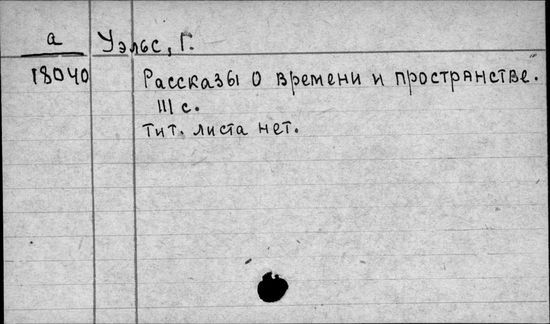 а Уэльс, Г.
18040 Рассказы о времени и пространстве.
111 с.
Тит. листа нет.